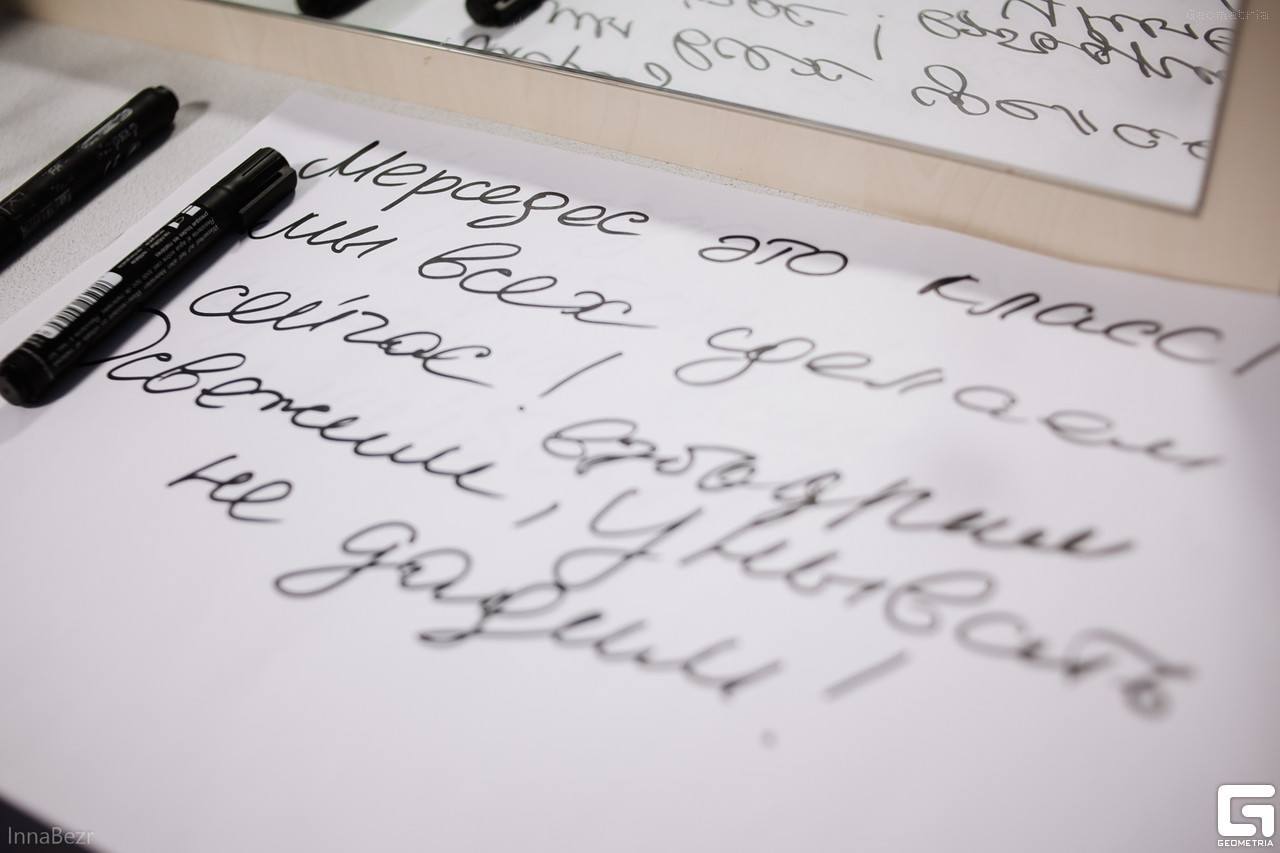 Мерседес это класс!
мы всех сделаем
сейчас! взбодрим
Освежим, унывать
не дадим!
Geometria
InnaBezr
GEOMETRIA